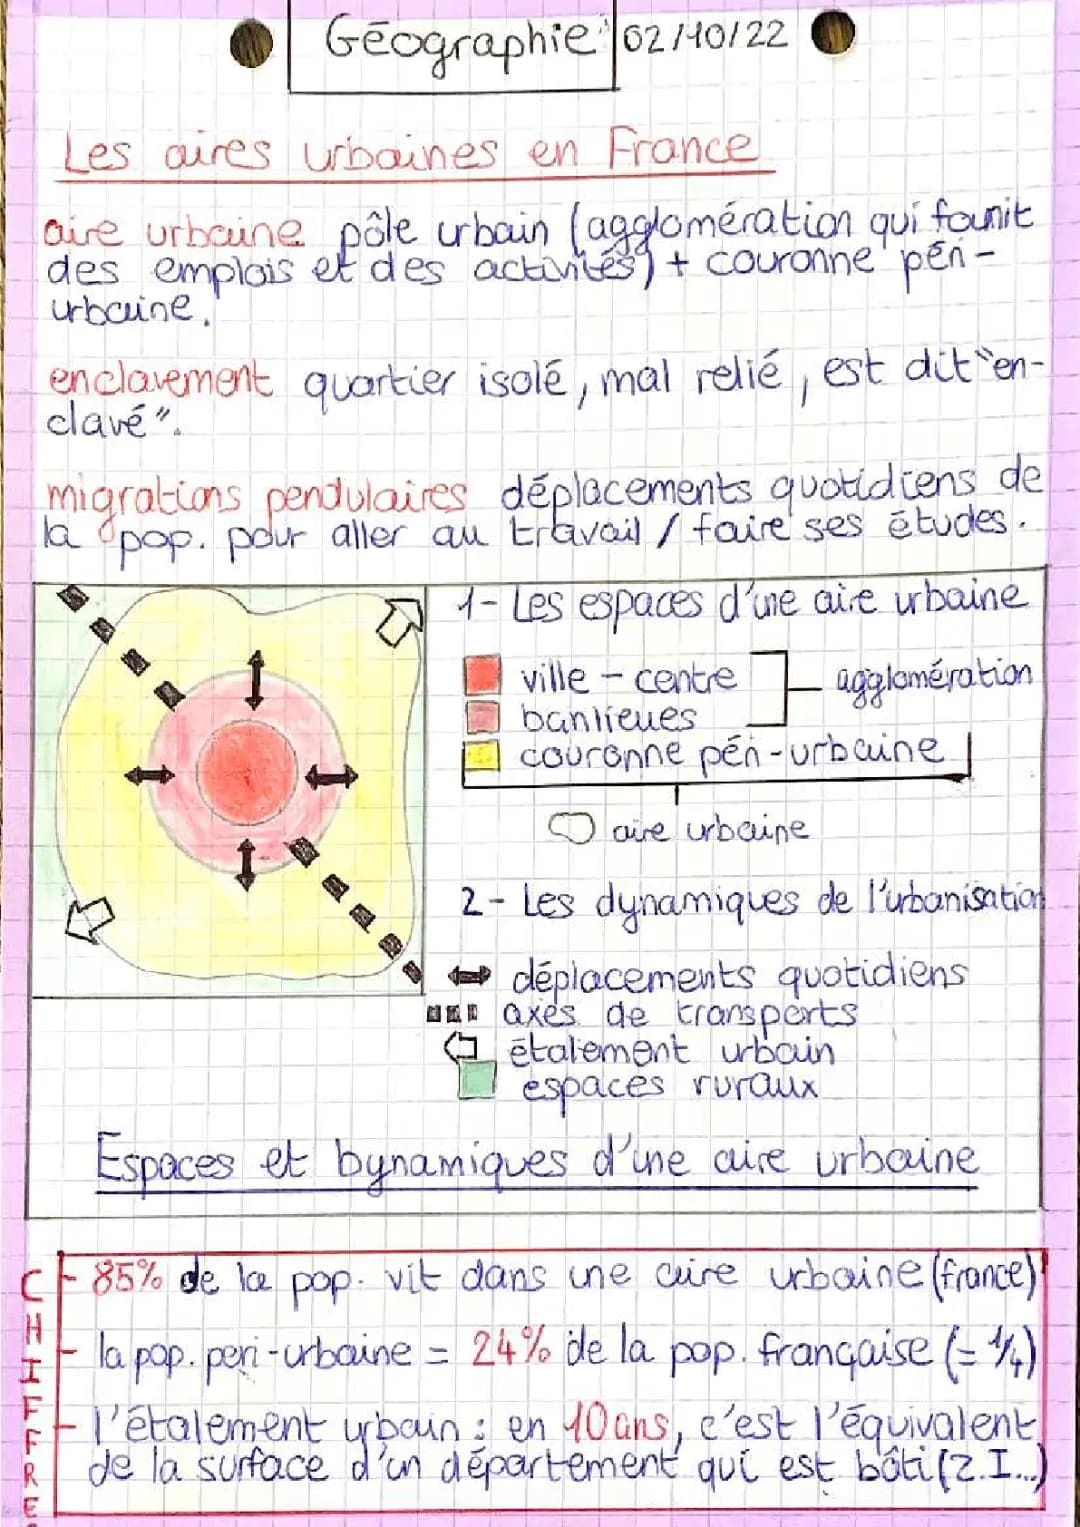 Géographie 02/10/22
Les aires urbaines en France
aire urbaine pôle urbain (agglomération qui founit
des emplois et des activités) + couronne péri-
urbaine.
enclavement quartier isolé, mal relié, est dit "en-
clavé".
migrations pendulaires déplacements quotidiens de
la pop. pour aller au travail / faire ses études.
1- Les espaces d'une aire urbaine
ville - centre
banlieues
agglomération
couronne péri-urbaine
aire urbaine
2- Les dynamiques de l'urbanisation
déplacements quotidiens
axes de transports
étalement urbain
espaces ruraux
Espaces et bynamiques d'une aire urbaine
CHIFFRE
- 85% de la pop. vit dans une aire urbaine (france)
- la pop. peri-urbaine = 24% de la pop. française (= 1/4)
- l'étalement urbain : en 10 ans, c'est l'équivalent
de la surface d'un département qui est bâti (Z.I...)